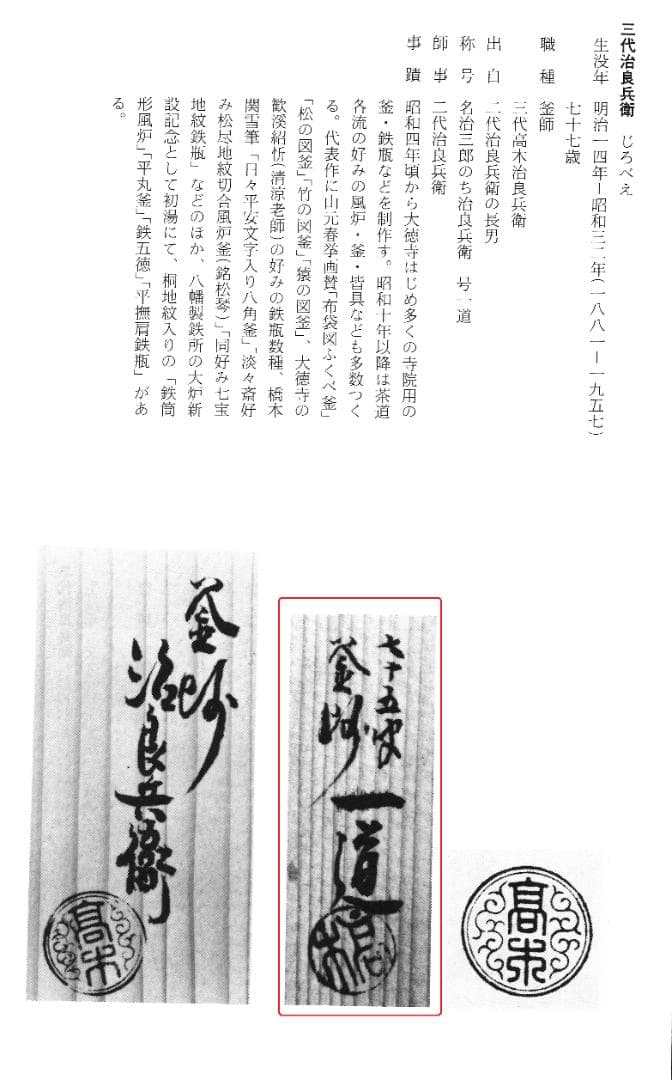 三代治良兵衛　じろべえ
生没年　明治一四年―昭和三二年(一八八一―一九五七)
七十七歳
職種　釜師
三代高木治良兵衛
出自　二代治良兵衛の長男
称号　名治三郎のち治良兵衛　号一道
師事　二代治良兵衛
事蹟　昭和四年頃から大徳寺はじめ多くの寺院用の
釜・鉄瓶などを制作す。昭和十年以降は茶道
各流の好みの風炉・釜・皆具なども多数つく
る。代表作に山元春挙画賛「布袋図ふくべ釜」
「松の図釜」「竹の図釜」「猿の図釜」、大徳寺の
歓渓紹忻(清涼老師)の好みの鉄瓶数種、橋本
関雪筆「日々平安文字入り八角釜」、淡々斎好
み松尽地紋切合風炉釜(銘松琴)」「同好み七宝
地紋鉄瓶」などのほか、八幡製鉄所の大炉新
設記念として初湯にて、桐地紋入りの「鉄筒
形風炉」「平丸釜」「鉄五徳」「平撫肩鉄瓶」があ
る。
七十五叟
釜師
一道
釜師
治良兵衛
高木
高木